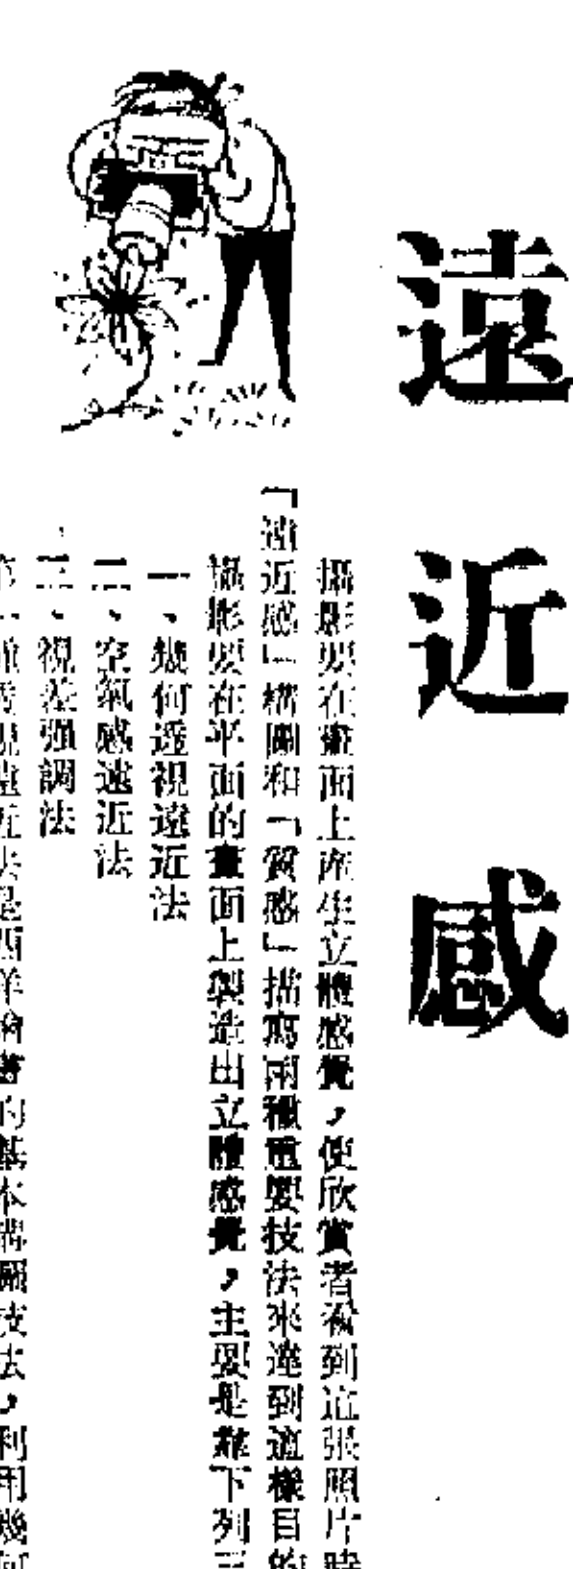 遠近感
攝影要在畫面上產生立體感覺，使欣賞者看到這張照片時
「遠近感」構圖和「質感」描寫兩種重要技法來達到這樣目的
攝影要在平面的畫面上製造出立體感覺，主要是靠下列三
一、幾何透視遠近法
二、空氣感遠近法
三、視差強調法
第一種透視遠近法是西洋繪畫的基本構圖技法，利用幾何